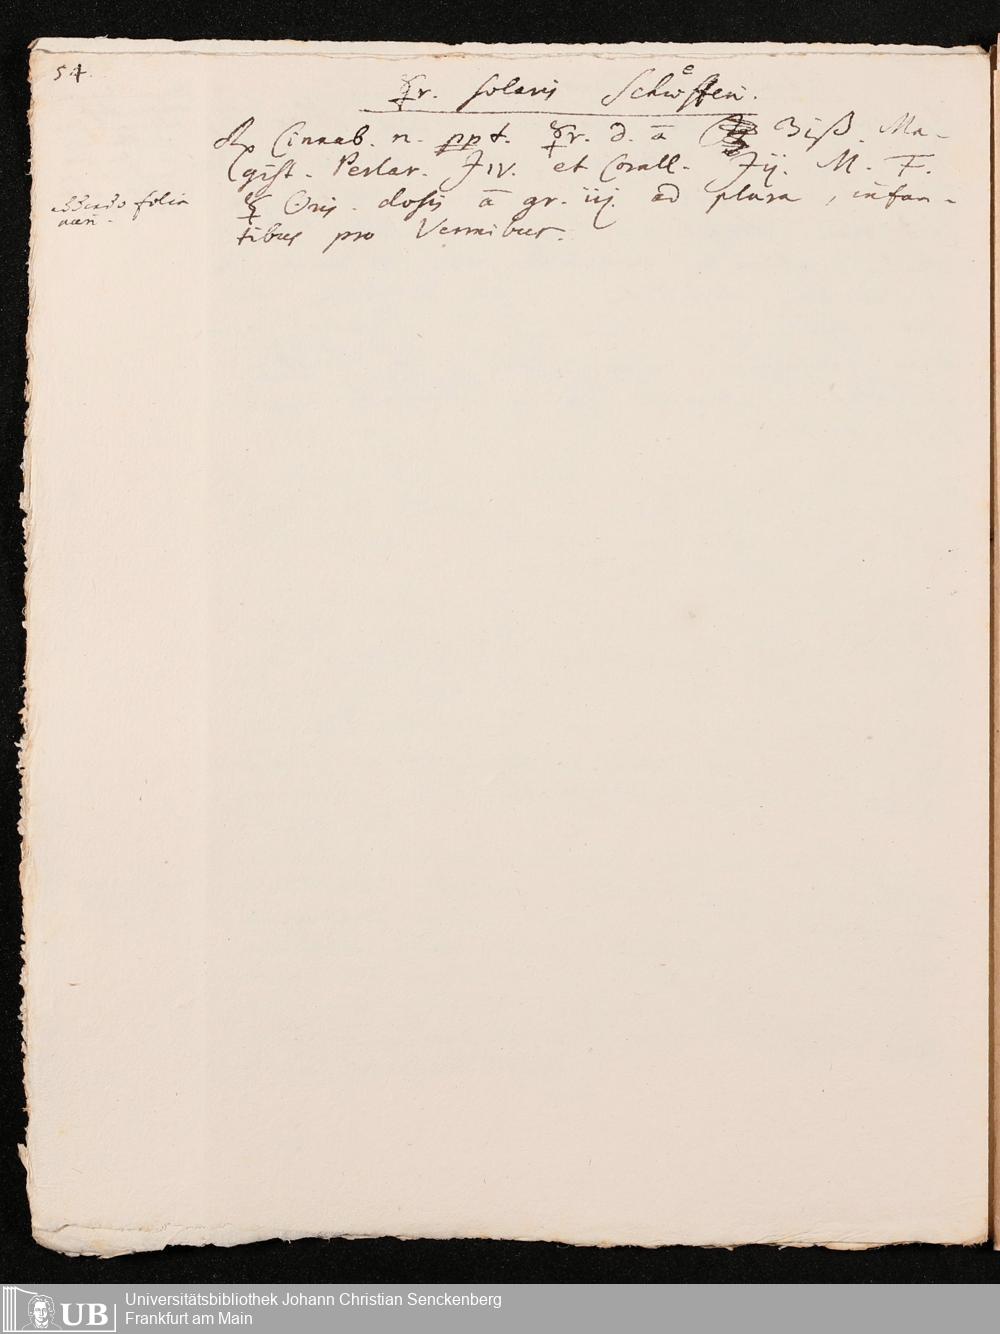 54.
♁r. solaris Schöfferi.
℞ Cinnab. n. ppt. ♁r. d. ā ʒiß. Ma-
gist. Perlar. ʒiv. et Corall. ʒij. M. F.
addendo folia
♁ Oris. dosis ā gr. iij. ad plura, infan-
tibus pro Vermibus.
UB
Universitätsbibliothek Johann Christian Senckenberg
Frankfurt am Main